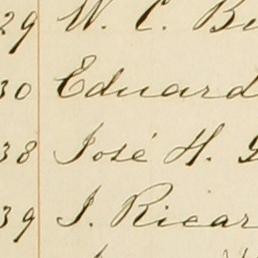 29 W. C. Bu
30 Eduard
38 José H. G
39 J. Ricar